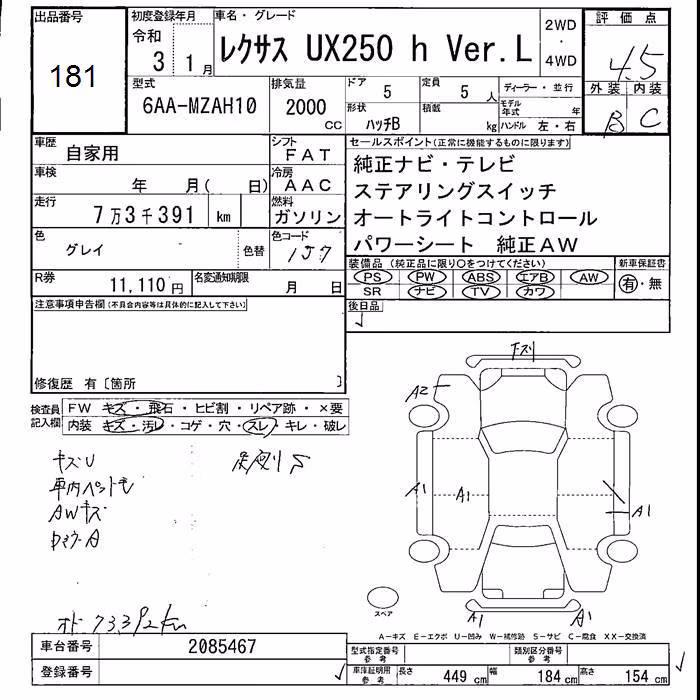 出品番号
181
初度登録年月
令和
3 1月
車名・グレード
レクサス UX250 h Ver.L
2WD
・
4WD
評価点
4.5
外装 内装
B C
型式
6AA-MZAH10
排気量
2000
CC
ドア 5
定員 5 人
形状 ハッチB
積載 kg
ディーラー・並行
モデル年式 年
ハンドル 左・右
車歴
自家用
シフト
FAT
車検
年 月( 日)
冷房
AAC
走行
7万3千391 km
燃料
ガソリン
色
グレイ
色替
色コード
157
R券
11,110円
名変通知期限
月 日
セールスポイント(正常に機能するものに限ります)
純正ナビ・テレビ
ステアリングスイッチ
オートライトコントロール
パワーシート 純正AW
装備品(純正品に限り○をつけてください)
PS PW ABS エアB AW
SR ナビ TV カワ
新車保証書
有・無
後日品
注意事項申告欄(不具合内容等は具体的に記入して下さい)
修復歴 有〔箇所 〕
検査員
記入欄
FW キズ・飛石・ヒビ割・リペア跡・×要
内装 キズ・汚レ・コゲ・穴・スレ・キレ・破レ
キズU
車内ペットモ
AWキズ
下スリ
A2
A1
A1
A1
A1
A1
スペア
A-キズ E-エクボ U-凹み W-補修跡 S-サビ C-腐食 XX-交換済
車台番号
2085467
登録番号
型式指定番号
参考
類別区分番号
参考
車庫証明用
参考
長さ 449 cm
幅 184 cm
高さ 154 cm